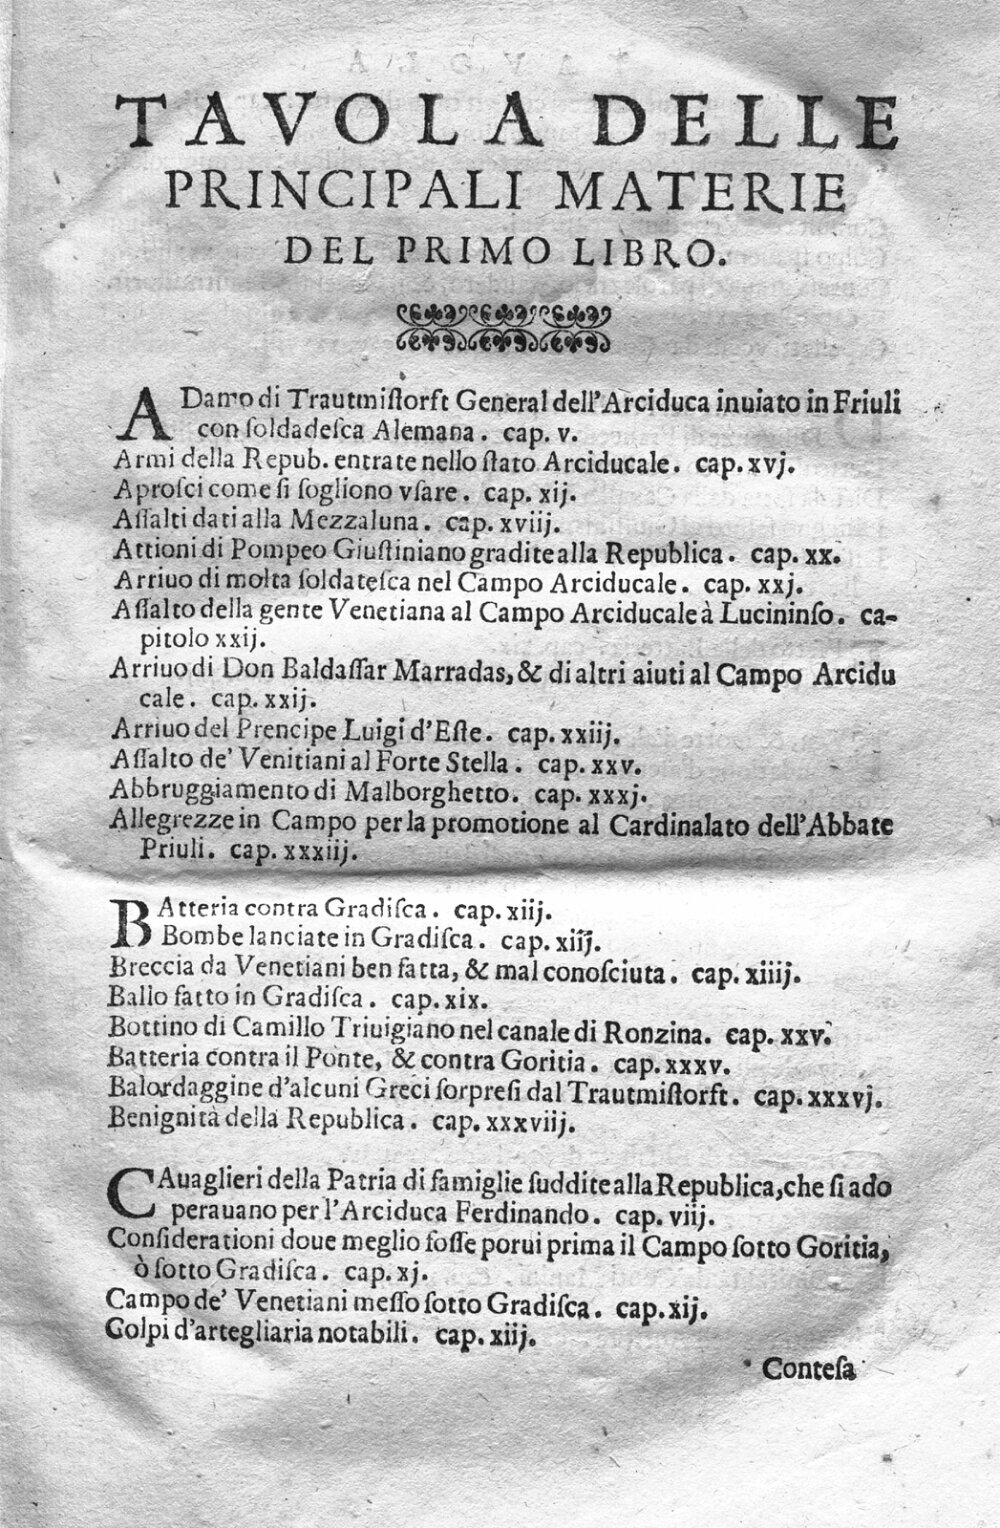 TAVOLA DELLE
PRINCIPALI MATERIE
DEL PRIMO LIBRO.
ADamo di Trautmiſtorft General dell'Arciduca inuiato in Friuli
con ſoldadeſca Alemana. cap. v.
Armi della Repub. entrate nello ſtato Arciducale. cap. xvj.
Aproſci come ſi ſogliono vſare. cap. xij.
Aſſalti dati alla Mezzaluna. cap. xviij.
Attioni di Pompeo Giuſtiniano gradite alla Republica. cap. xx.
Arriuo di molta ſoldateſca nel Campo Arciducale. cap. xxj.
Aſſalto della gente Venetiana al Campo Arciducale à Lucininſo. ca-
pitolo xxij.
Arriuo di Don Baldaſſar Marradas, & di altri aiuti al Campo Arcidu
cale. cap. xxij.
Arriuo del Prencipe Luigi d'Eſte. cap. xxiij.
Aſſalto de' Venitiani al Forte Stella. cap. xxv.
Abbruggiamento di Malborghetto. cap. xxxj.
Allegrezze in Campo per la promotione al Cardinalato dell'Abbate
Priuli. cap. xxxiij.
BAtteria contra Gradiſca. cap. xiij.
Bombe lanciate in Gradiſca. cap. xiij.
Breccia da Venetiani ben fatta, & mal conoſciuta. cap. xiiij.
Ballo fatto in Gradiſca. cap. xix.
Bottino di Camillo Triuigiano nel canale di Ronzina. cap. xxv.
Batteria contra il Ponte, & contra Goritia. cap. xxxv.
Balordaggine d'alcuni Greci ſorpreſi dal Trautmiſtorft. cap. xxxvj.
Benignità della Republica. cap. xxxviij.
CAuaglieri della Patria di famiglie ſuddite alla Republica, che ſi ado
perauano per l'Arciduca Ferdinando. cap. viij.
Conſiderationi doue meglio foſſe porui prima il Campo ſotto Goritia,
ò ſotto Gradiſca. cap. xj.
Campo de' Venetiani meſſo ſotto Gradiſca. cap. xij.
Colpi d'artegliaria notabili. cap. xiij.
Conteſa